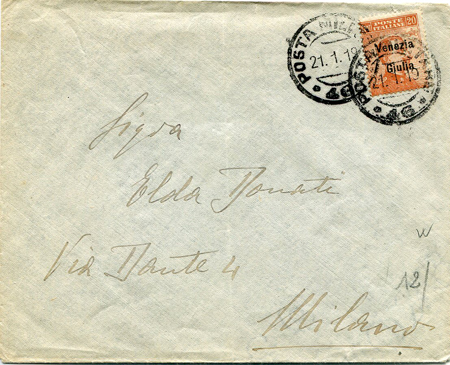 POSTE ITALIANE 20
Venezia
Giulia
POSTA MILITARE
21.1.19
46
POSTA MILITARE
21.1.19
46
Sigra
Elda Donati
Via Dante 4
Milano
W
12/